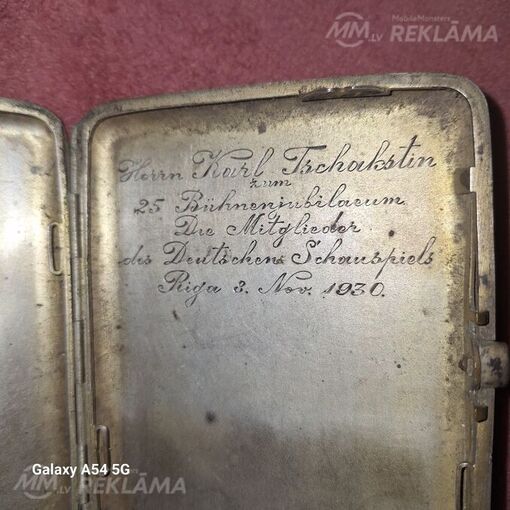 MobileMonsters
MM.LV REKLĀMA
Herrn Karl Tschakstin
zum
25 Bühnenjubilaeum
Die Mitglieder
des Deutschen Schauspiels
Riga 3. Nov. 1930.
Galaxy A54 5G
MM.LV REKLĀMA